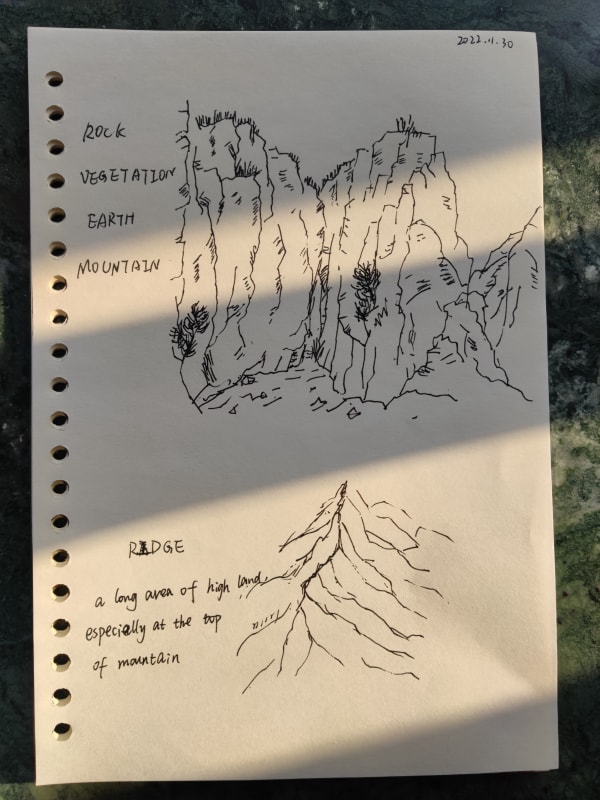 2022.11.30
ROCK
VEGETATION
EARTH
MOUNTAIN
RIDGE
a long area of high land,
especially at the top
of mountain